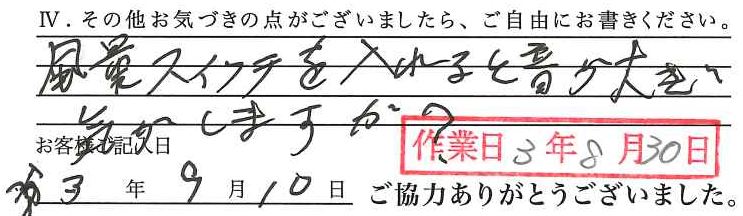 Ⅳ．その他お気づきの点がございましたら、ご自由にお書きください。
風量スイッチを入れると音が大きい
気がしますが？
お客様ご記入日
作業日 3年8月30日
3年9月10日 ご協力ありがとうございました。